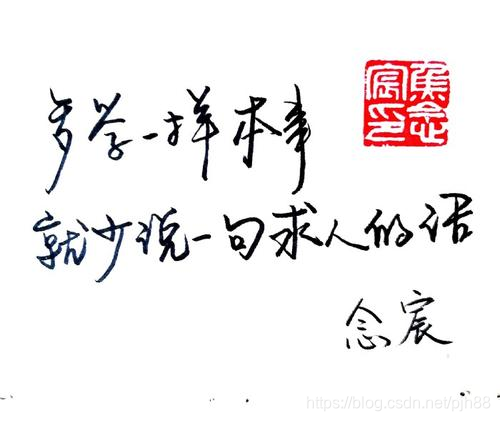 多学一样本事
焦念宸印
就少说一句求人的话
念宸
https://blog.csdn.net/pjh88